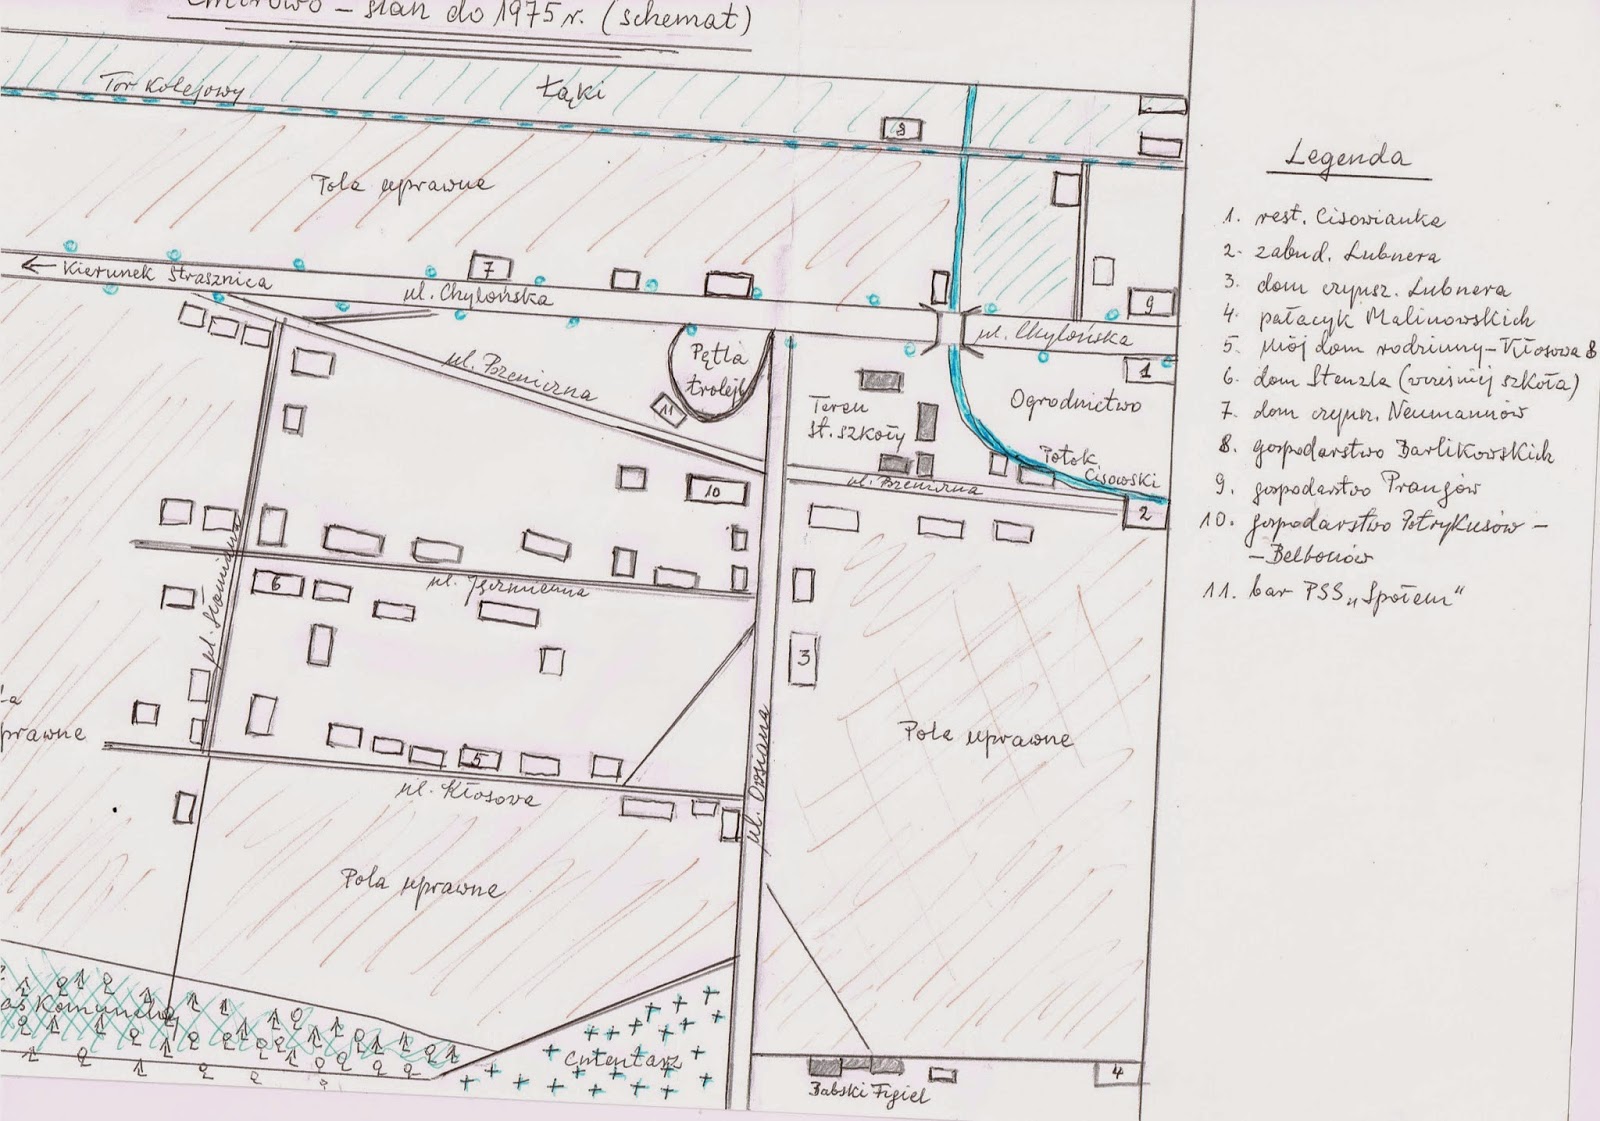 – stan do 1975 r. (schemat)
Tor Kolejowy
Łąki
8
Pola uprawne
← Kierunek Strasznica
7
ul. Chylońska
9
ul. Chylońska
ul. Pszeniczna
Pętla
trolejb
11
1
Teren
st. szkoły
Ogrodnictwo
Potok
Cisowski
ul. Pszeniczna
10
2
ul. Jęczmienna
6
ul. Słomiana
3
prawne
5
ul. Kłosowa
ul. Owsiana
Pola uprawne
Pola uprawne
as Komunalny
Cmentarz
Babski Figiel
4
Legenda
1. rest. Cisowianka
2. zabud. Lubnera
3. dom czynsz. Lubnera
4. pałacyk Malinowskich
5. Mój dom rodzinny – Kłosowa 8
6. dom Stenzla (wcześniej szkoła)
7. dom czynsz. Neumannów
8. gospodarstwo Barlikowskich
9. gospodarstwo Prangów
10. gospodarstwo Potrykusów –
– Belbonów
11. bar PSS „Społem"